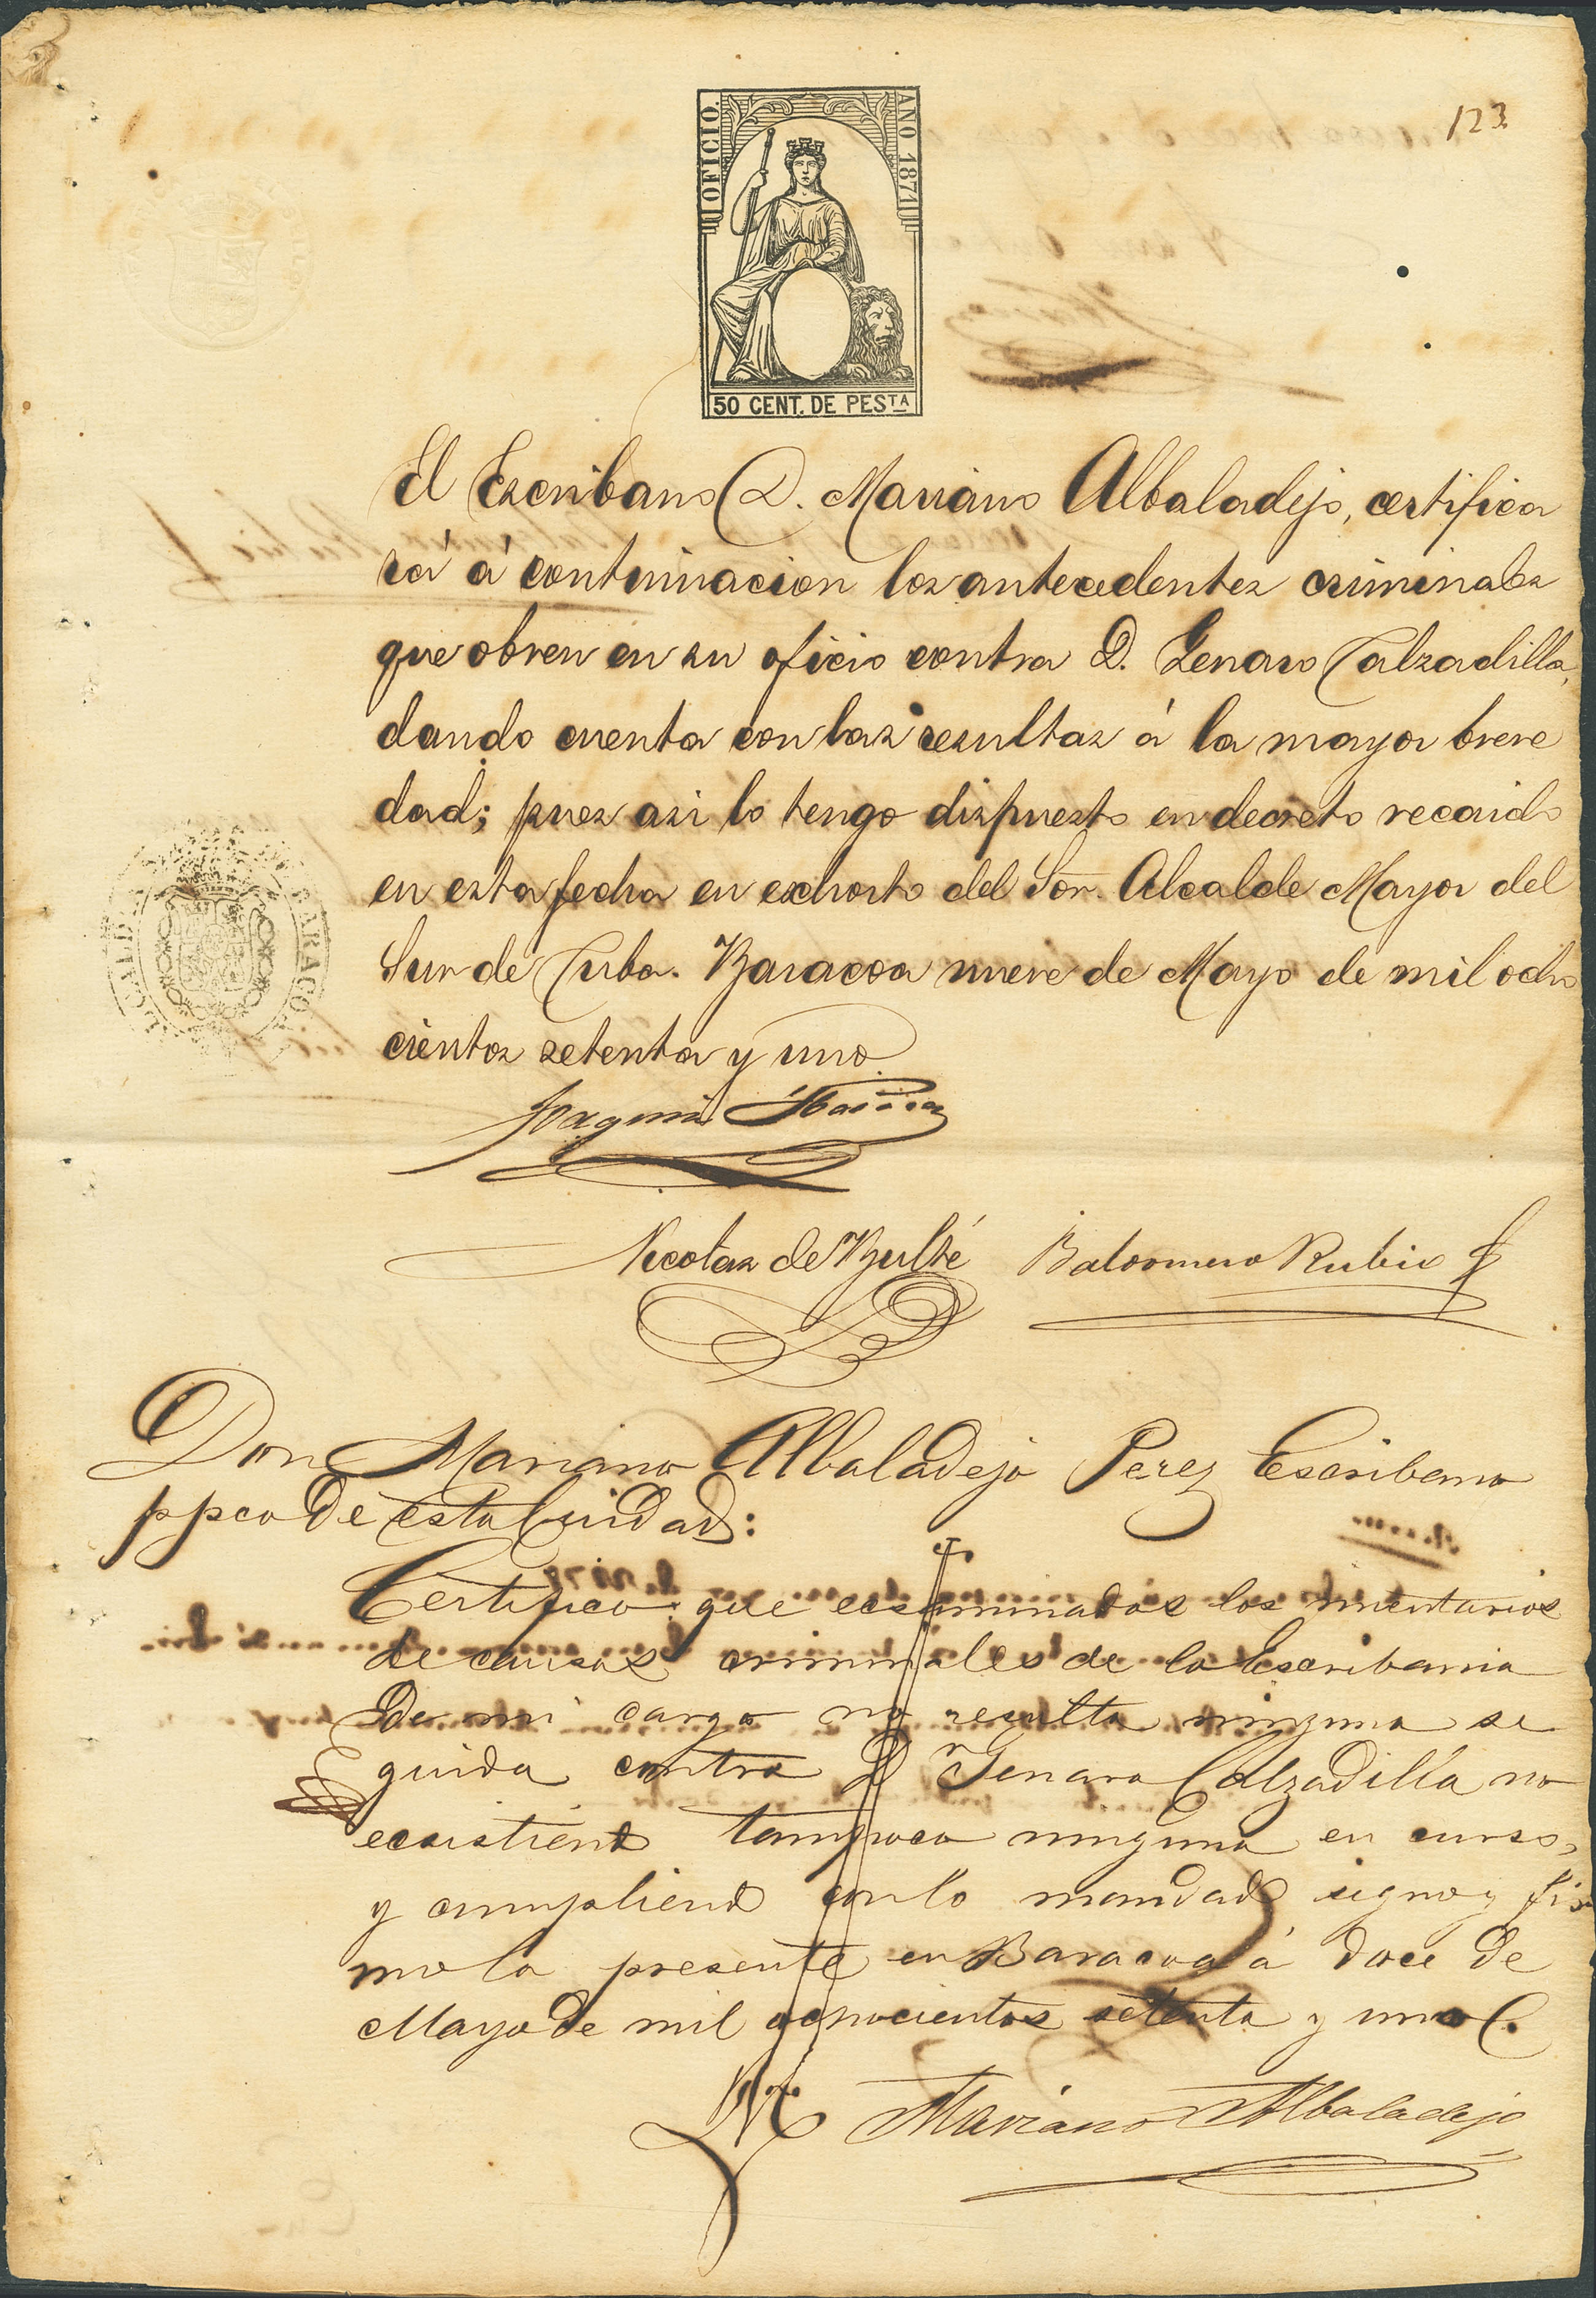 123
OFICIO.
AÑO 1871
50 CENT. DE PESTA
El Escribano D. Mariano Albaladejo, certifica
rá á continuacion los antecedentes criminales
que obren en su oficio contra D. Genaro Calzadilla,
dando cuenta con las resultas á la mayor breve
dad; pues asi lo tengo dispuesto en decreto recaido
en esta fecha en exhorto del Sor. Alcalde Mayor del
Sur de Cuba. Baracoa nueve de Mayo de mil ocho
cientos setenta y uno
Joaquin
Nicolas de Bulté Baldomero Rubio
Don Mariano Albaladejo Perez Escribano
ppco de esta Ciudad:
Certifico: que ecsaminados los inventarios
de causas criminales de la Escribania
de mi cargo no resulta ninguna se
guida contra Dn Genaro Calzadilla no
ecsistiendo tampoco ninguna en curso,
y cumpliendo con lo mandado signo y fir
mo la presente en Baracoa á doce de
Mayo de mil ochocientos setenta y uno
Mariano Albaladejo